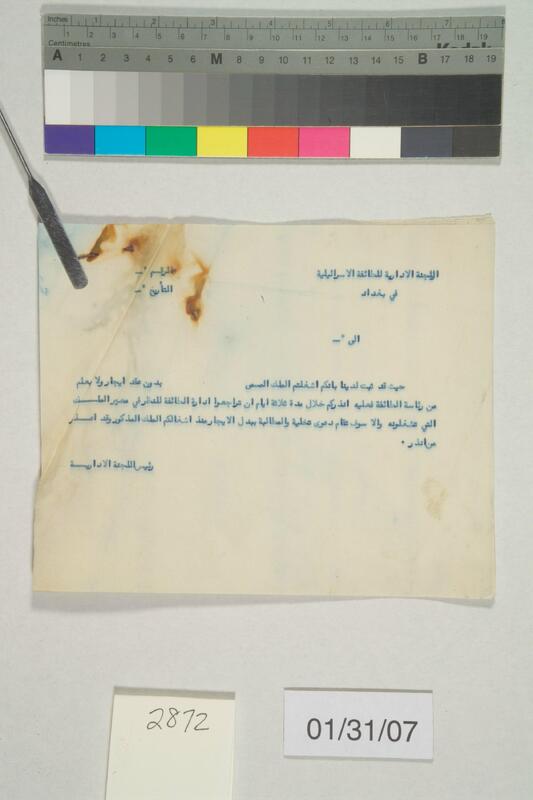 Inches 1 2 3 4 5 6 7 8
1 2 3 4 5 6 7 8 9 10 11 12 13 14 15 16 17 18 19
Centimetres
Kodak
A 1 2 3 4 5 6 M 8 9 10 11 12 13 14 15 B 17 18 19
اللجنة الادارية للطائفة الاسرائيلية
الرقم :-
في بغداد
التأريخ :-
الى :-
حيث قد ثبت لدينا بانكم اشغلتم الملك المسمى بدون عقد ايجار ولا بعلم
من رئاسة الطائفة فعليه انذركم خلال مدة ثلاثة ايام ان تراجعوا ادارة الطائفة للنظر في مصير الملك
التي تشغلونه والا سوف تقام دعوى تخلية والمطالبة ببدل الايجار منذ اشغالكم الملك المذكور وقد اعذر
من انذر .
رئيس اللجنة الادارية
2872
01/31/07